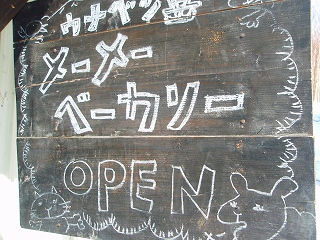 ウナベツ岳
メーメー
ベーカリー
OPEN